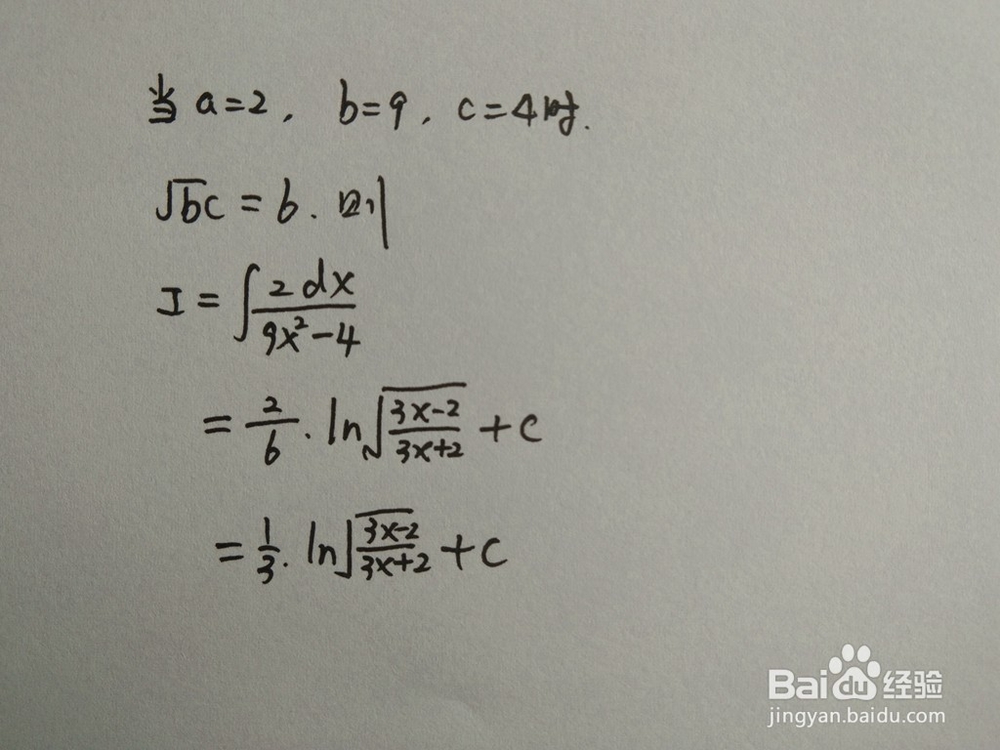 当 a=2, b=9, c=4时.
√bc = 6. 则
I = ∫ 2dx/(9x²-4)
= 2/6 · ln√((3x-2)/(3x+2)) + C
= 1/3 · ln√((3x-2)/(3x+2)) + C
Baidu 经验
jingyan.baidu.com